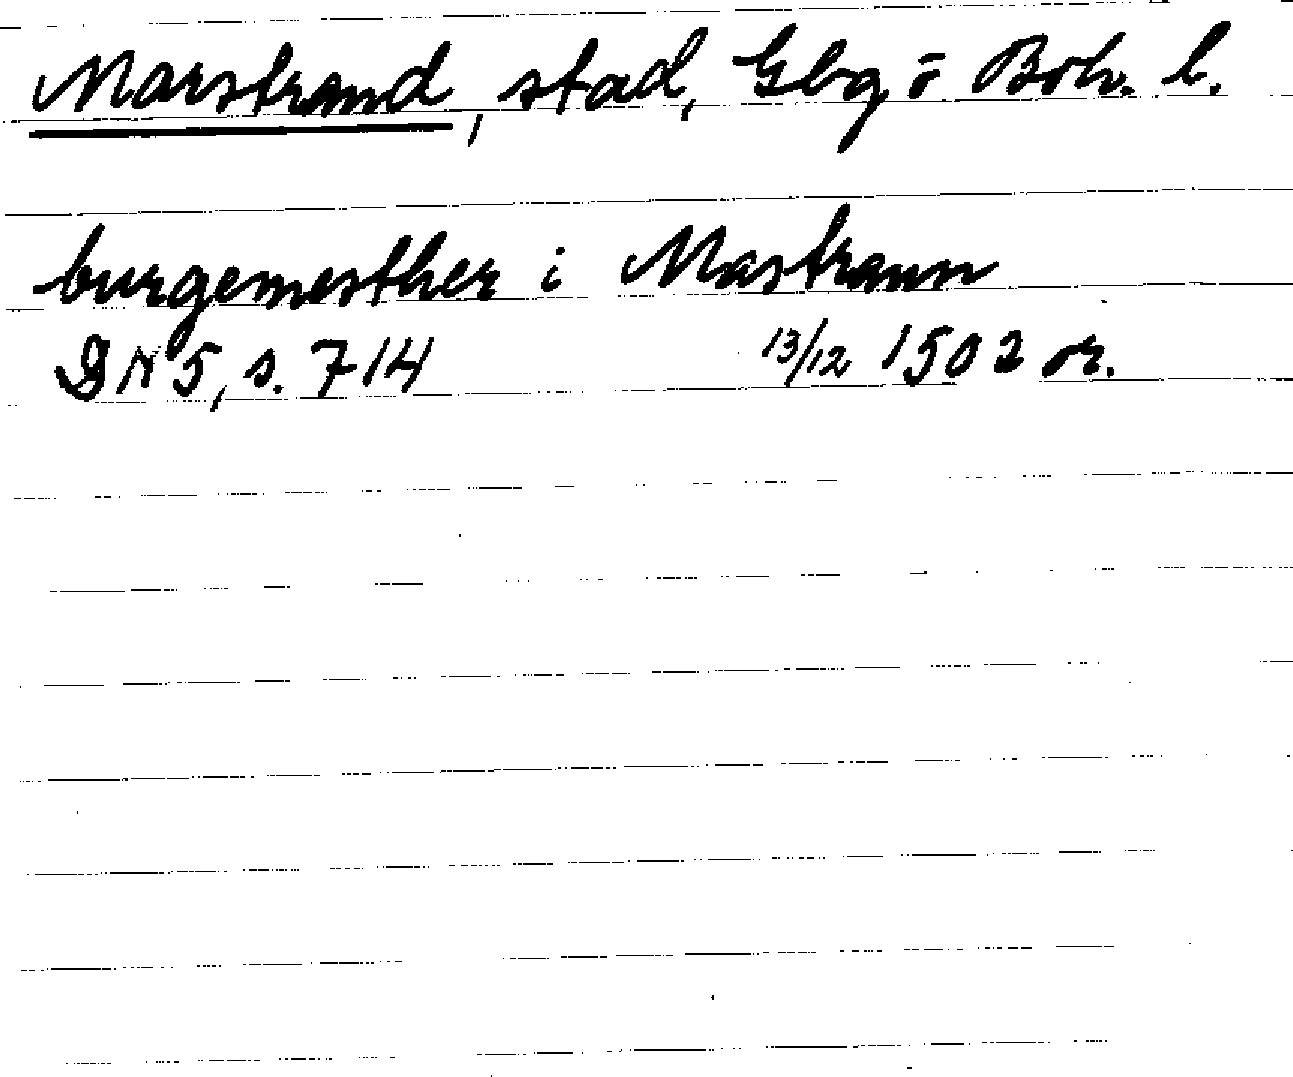 Marstrand, stad, Gbg o Boh. l.
burgemesther i Mastrann
DN 5, s. 714 13/12 1502 or.